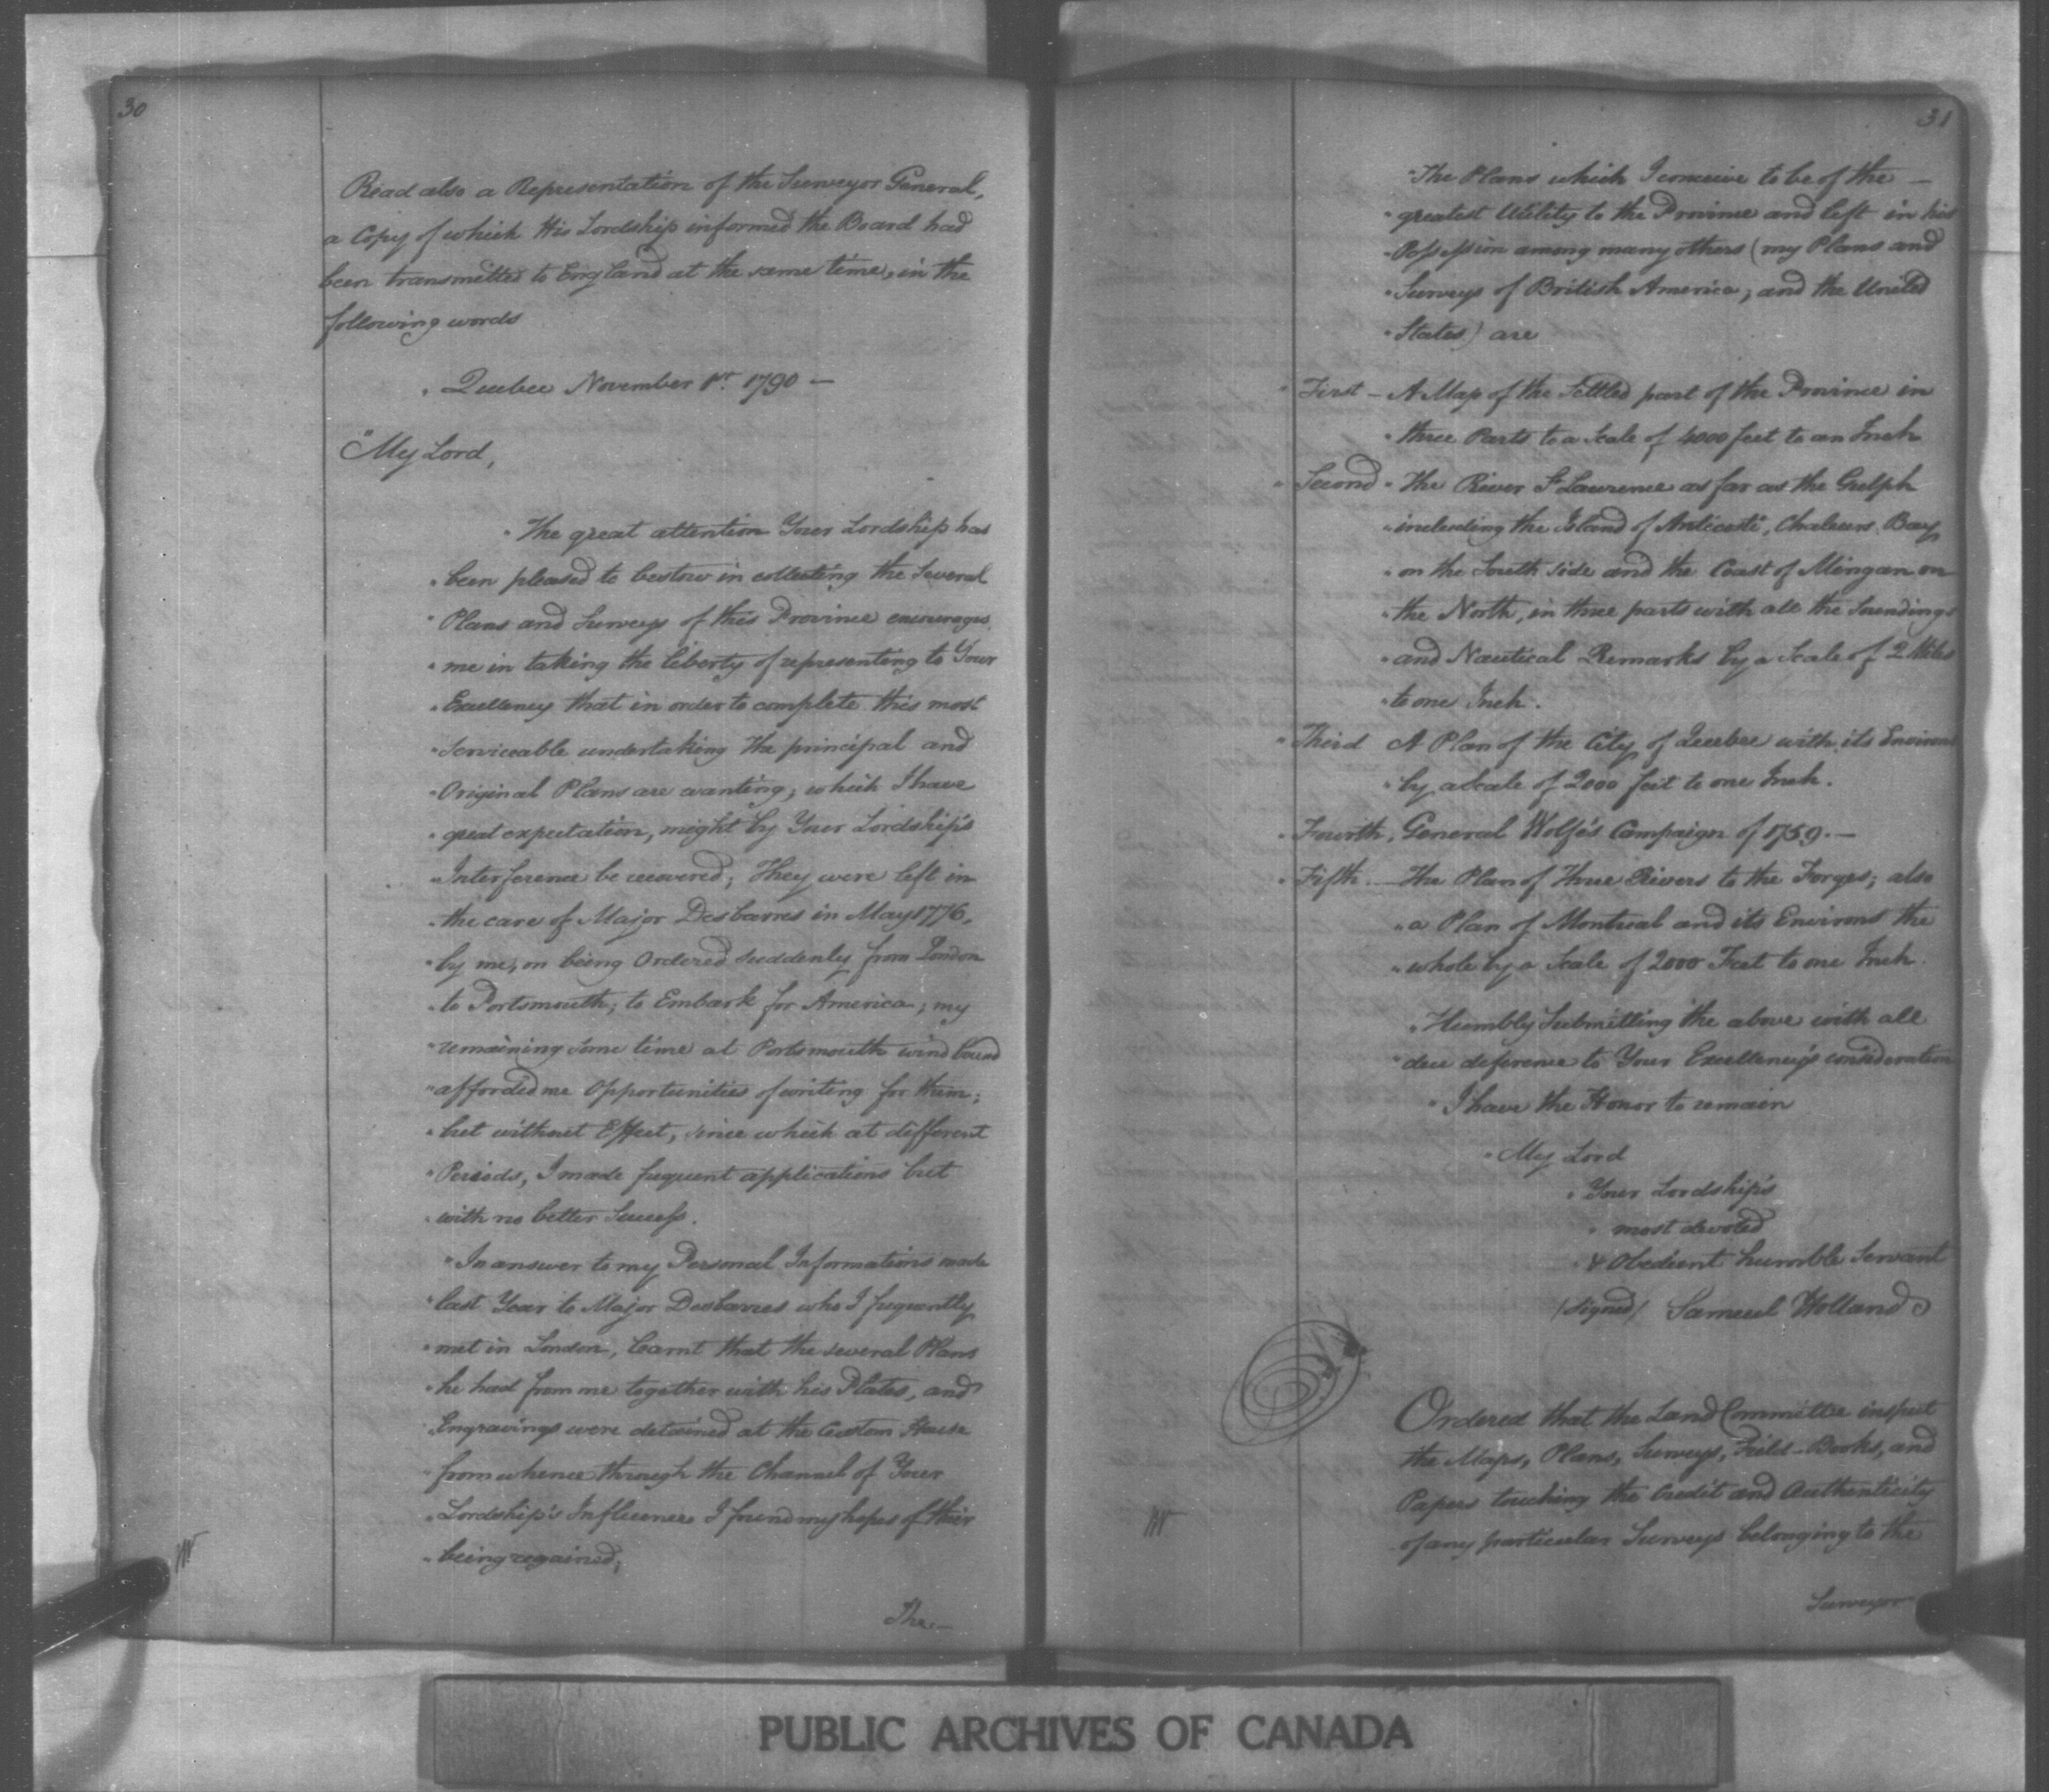 30
Read also a Representation of the Surveyor General,
a Copy of which His Lordship informed the Board had
been transmitted to England at the same time, in the
following words
" Quebec November 1st. 1790 —
"My Lord,
"The great attention Your Lordship has
"been pleased to bestow in collecting the Several
"Plans and Surveys of this Province encourages
"me in taking the liberty of representing to Your
"Excellency that in order to complete this most
"Serviceable undertaking the principal and
"Original Plans are wanting; which I have
"great expectation, might by Your Lordship's
"Interference be recovered; They were left in
"the care of Major Desbarres in May 1776,
"by me, on being Ordered suddenly from London
"to Portsmouth; to Embark for America; my
"remaining some time at Portsmouth wind bound
"afforded me Opportunities of writing for them;
"but without Effect, since which at different
"Periods, I made frequent applications but
"with no better Success.
"In answer to my Personal Informations made
"last Year to Major Desbarres who I frequently
"met in London, learnt that the several Plans
"he had from me together with his Plates, and
"Engravings were detained at the Custom House
"from whence through the Channel of Your
"Lordship's Influence I found my hopes of their
"being regained;
The —
31
"The Plans which I conceive to be of the —
"greatest Utility to the Province and left in his
"Possession among many others (my Plans and
"Surveys of British America, and the United
"States) are
"First — A Map of the Settled part of the Province in
"three Parts to a Scale of 4000 feet to an Inch
"Second "The River St Lawrence as far as the Gulph
"including the Island of Anticosti, Chaleurs Bay
"on the South side and the Coast of Mingan on
"the North, in three parts with all the Soundings
"and Nautical Remarks by a Scale of 2 Miles
"to one Inch.
"Third A Plan of the City of Quebec with its Environs
"by a Scale of 2000 feet to one Inch.
"Fourth, General Wolfe's Campaign of 1759. —
"Fifth. — The Plan of Three Rivers to the Forges; also
"a Plan of Montreal and its Environs the
"whole by a Scale of 2000 Feet to one Inch.
"Humbly Submitting the above with all
"due deference to Your Excellency's consideration
"I have the Honor to remain
"My Lord
"Your Lordship's
"most devoted
"& Obedient humble Servant
(Signed) Samuel Holland
Ordered that the Land Committee inspect
the Maps, Plans, Surveys, Field-Books, and
Papers touching the Credit and Authenticity
of any particular Surveys belonging to the
Surveyor
PUBLIC ARCHIVES OF CANADA